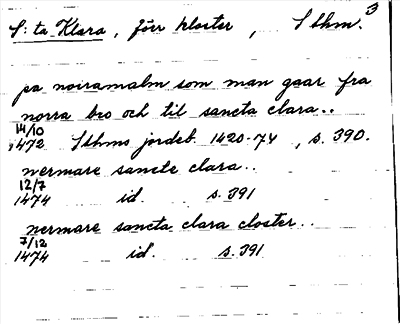 S:ta Klara, förr kloster, Sthm. 3
pa noiramalm som man gaar fra
norra bro och til sancta clara..
14/10
1472 Sthms jordeb. 1420-74, s. 390.
nermare sancte clara..
12/7
1474 id. s. 391
nermare sancta clara closter..
7/12
1474 id. s. 391